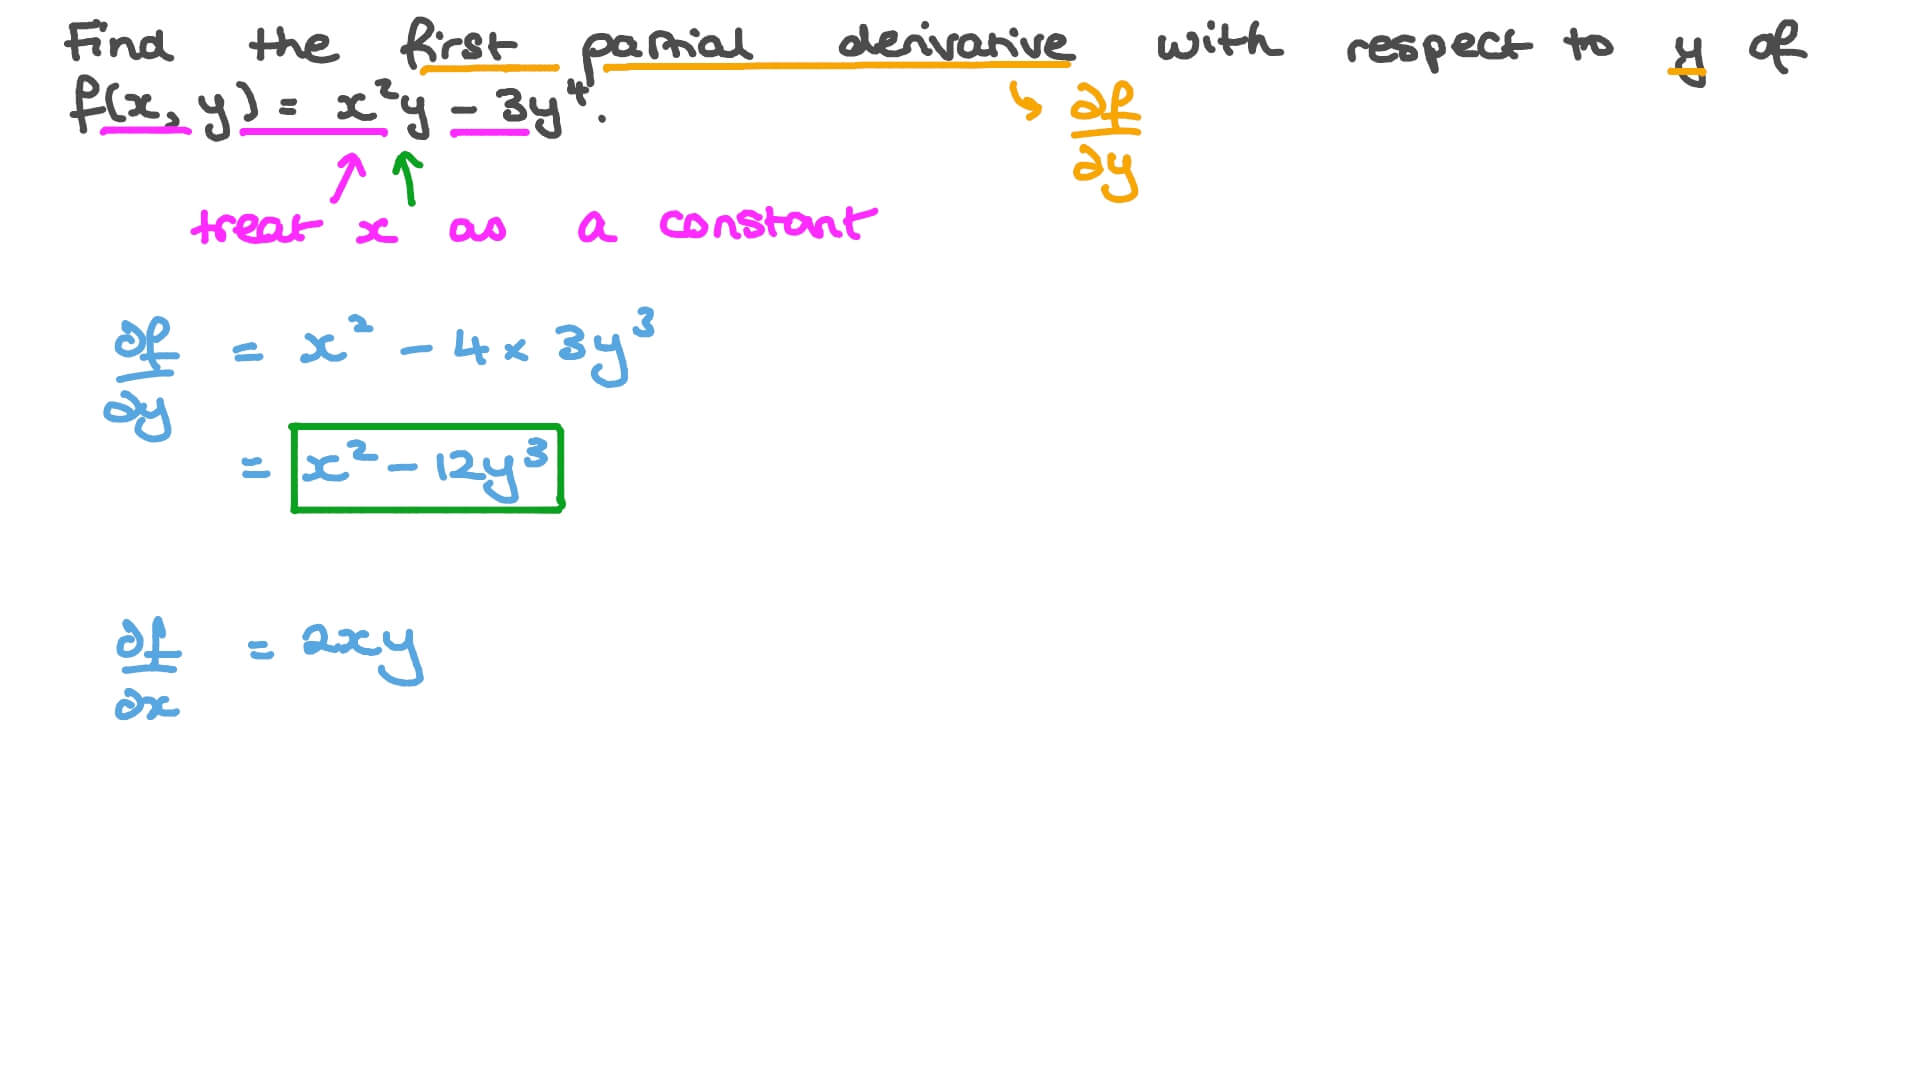 Find the first partial derivative with respect to y of
f(x, y) = x²y - 3y⁴.
∂f/∂y
treat x as a constant
∂f/∂y = x² - 4 × 3y³
= x² - 12y³
∂f/∂x = 2xy